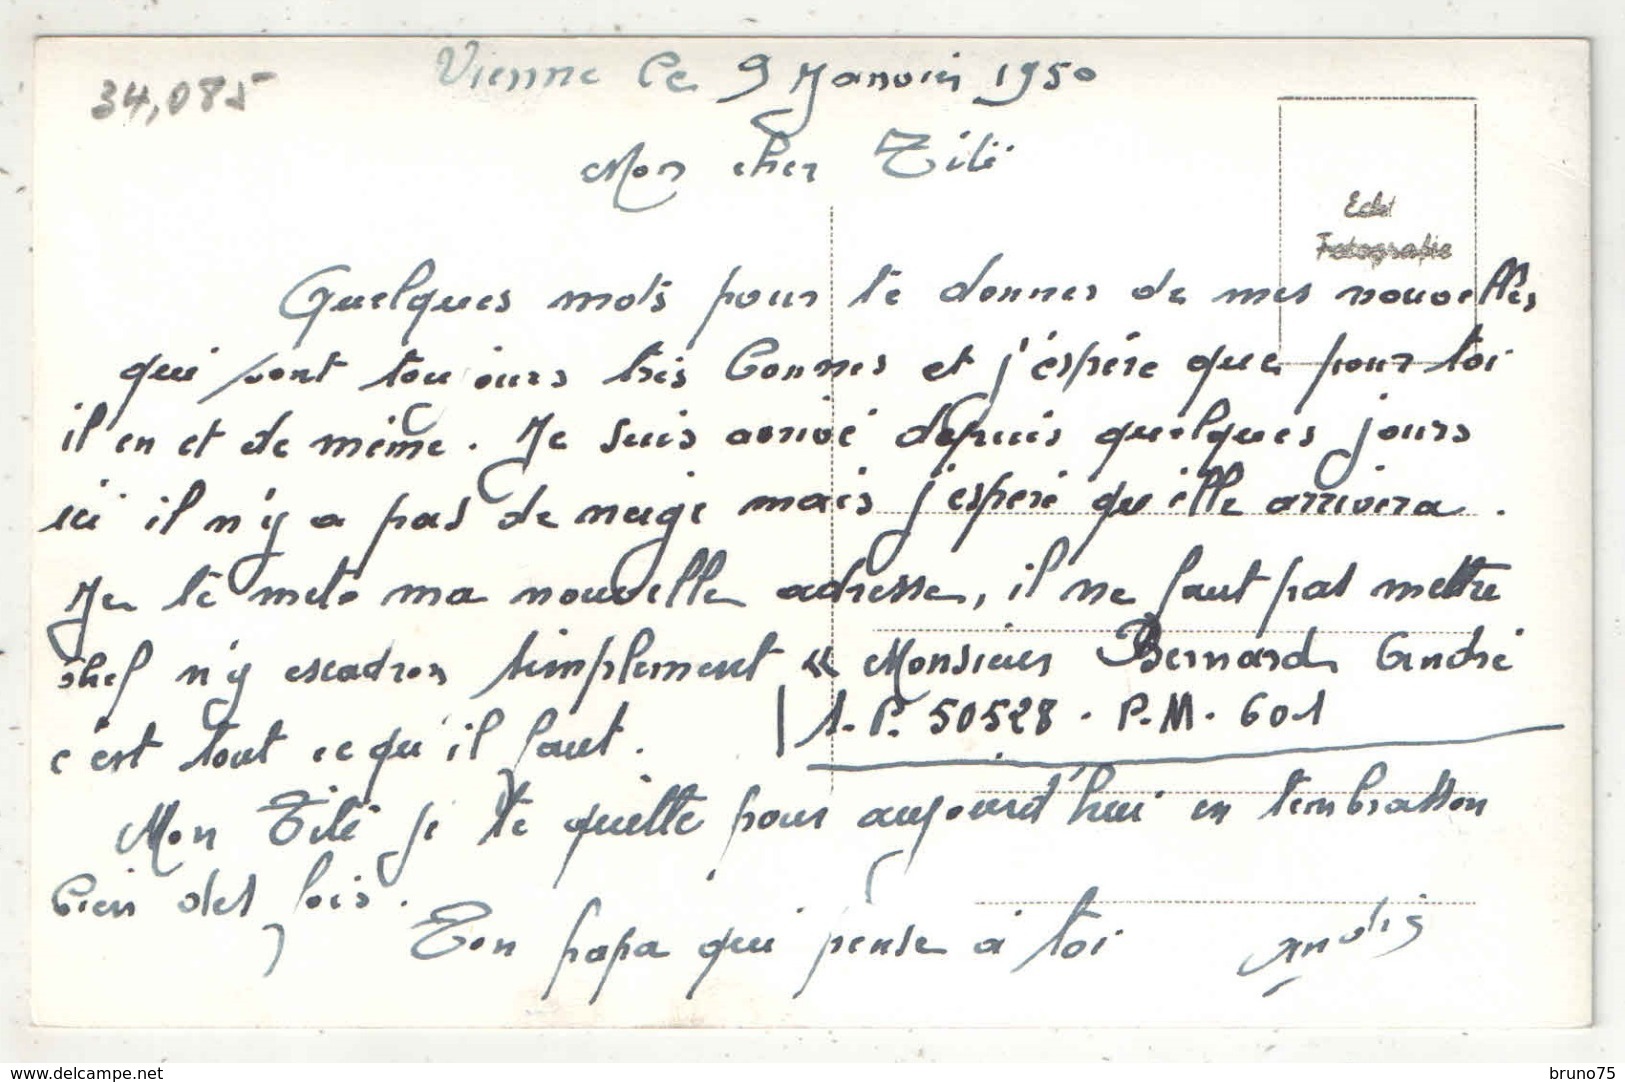 34,085
Vienne le 9 Janvier 1950
Mon cher Titi
Echt
Fotografie
Quelques mots pour te donner de mes nouvelles
qui sont toujours très bonnes et j'éspère que pour toi
il en et de même. Je suis arrivé depuis quelques jours
ici il n'y a pas de neige mais j'espère qu'elle arrivera.
Je te mets ma nouvelle adresse, il ne faut pas mettre
chef n'y escadron simplement « Monsieur Bernard André
S.P. 50528 . P.M. 601
c'est tout ce qu'il faut.
Mon Titi je te quitte pour aujourd'hui en t'embrassan
bien des fois.
Ton papa qui pense à toi
André
delcampe.net
bruno75